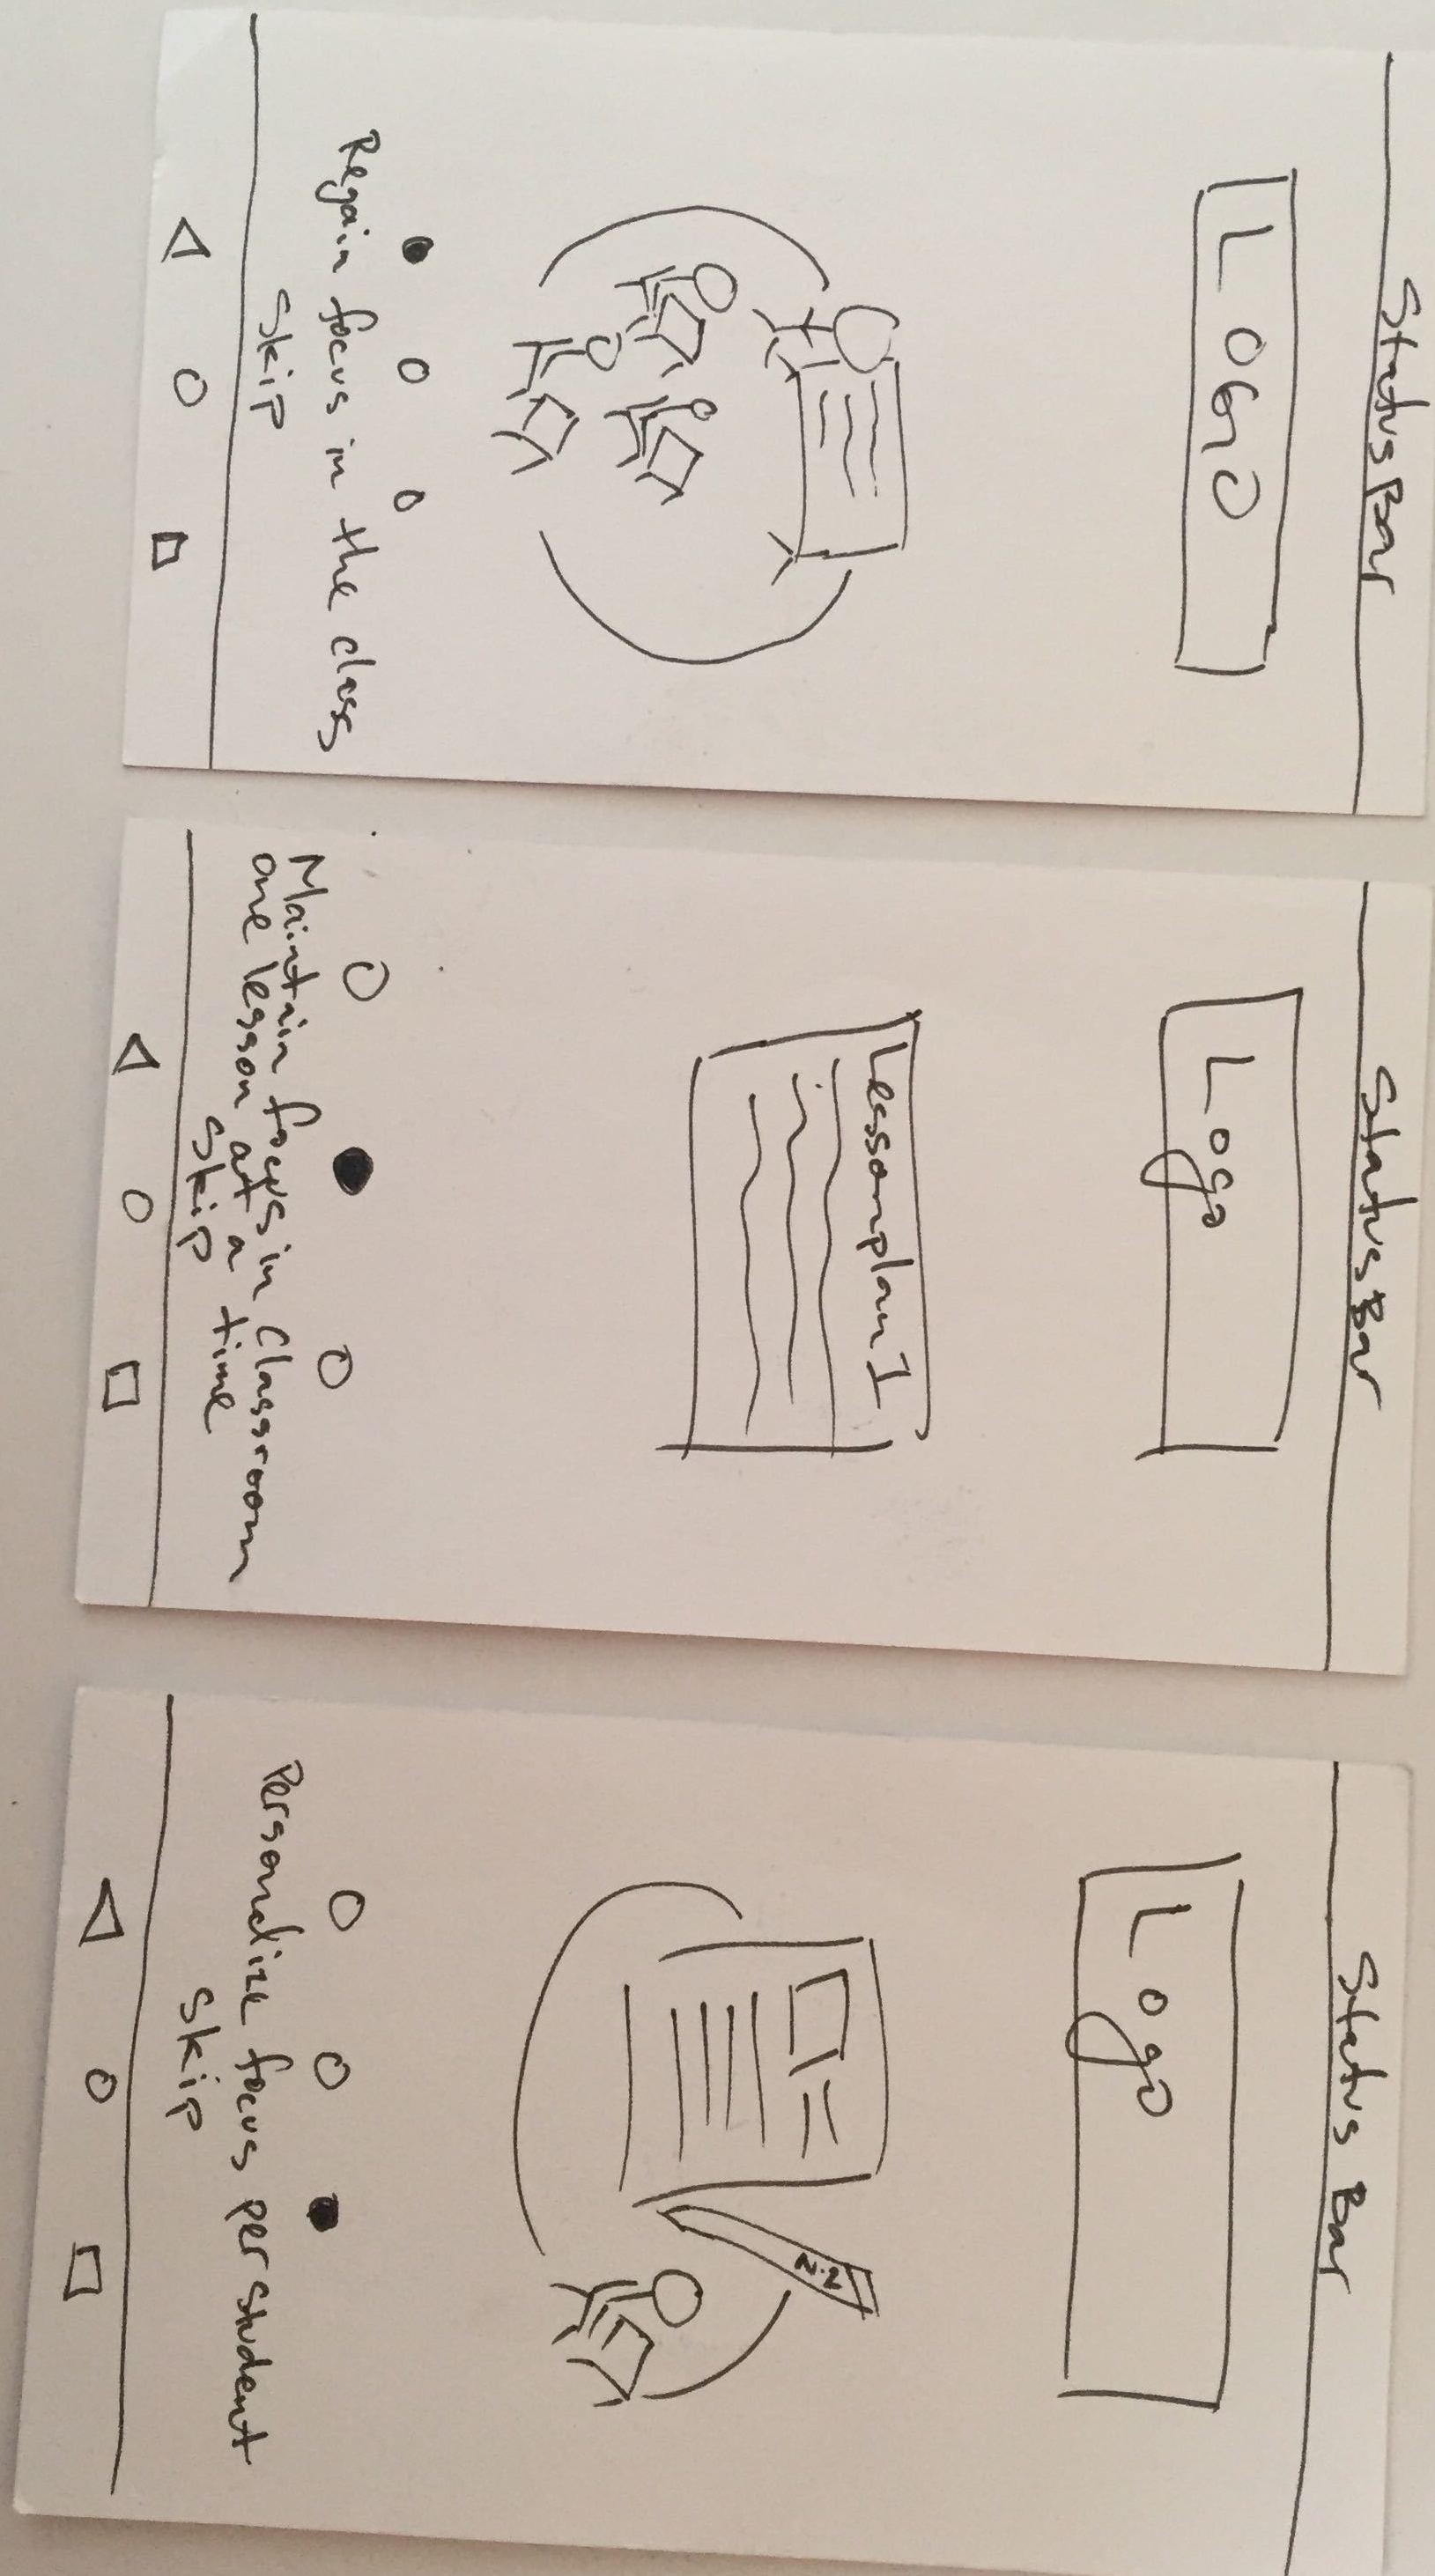 Status Bar
LOGO
Regain focus in the class
Skip
Status Bar
Logo
Lessonplan 1
Maintain focus in Classroom
one lesson at a time
Skip
Status Bar
Logo
Personalize focus per student
Skip